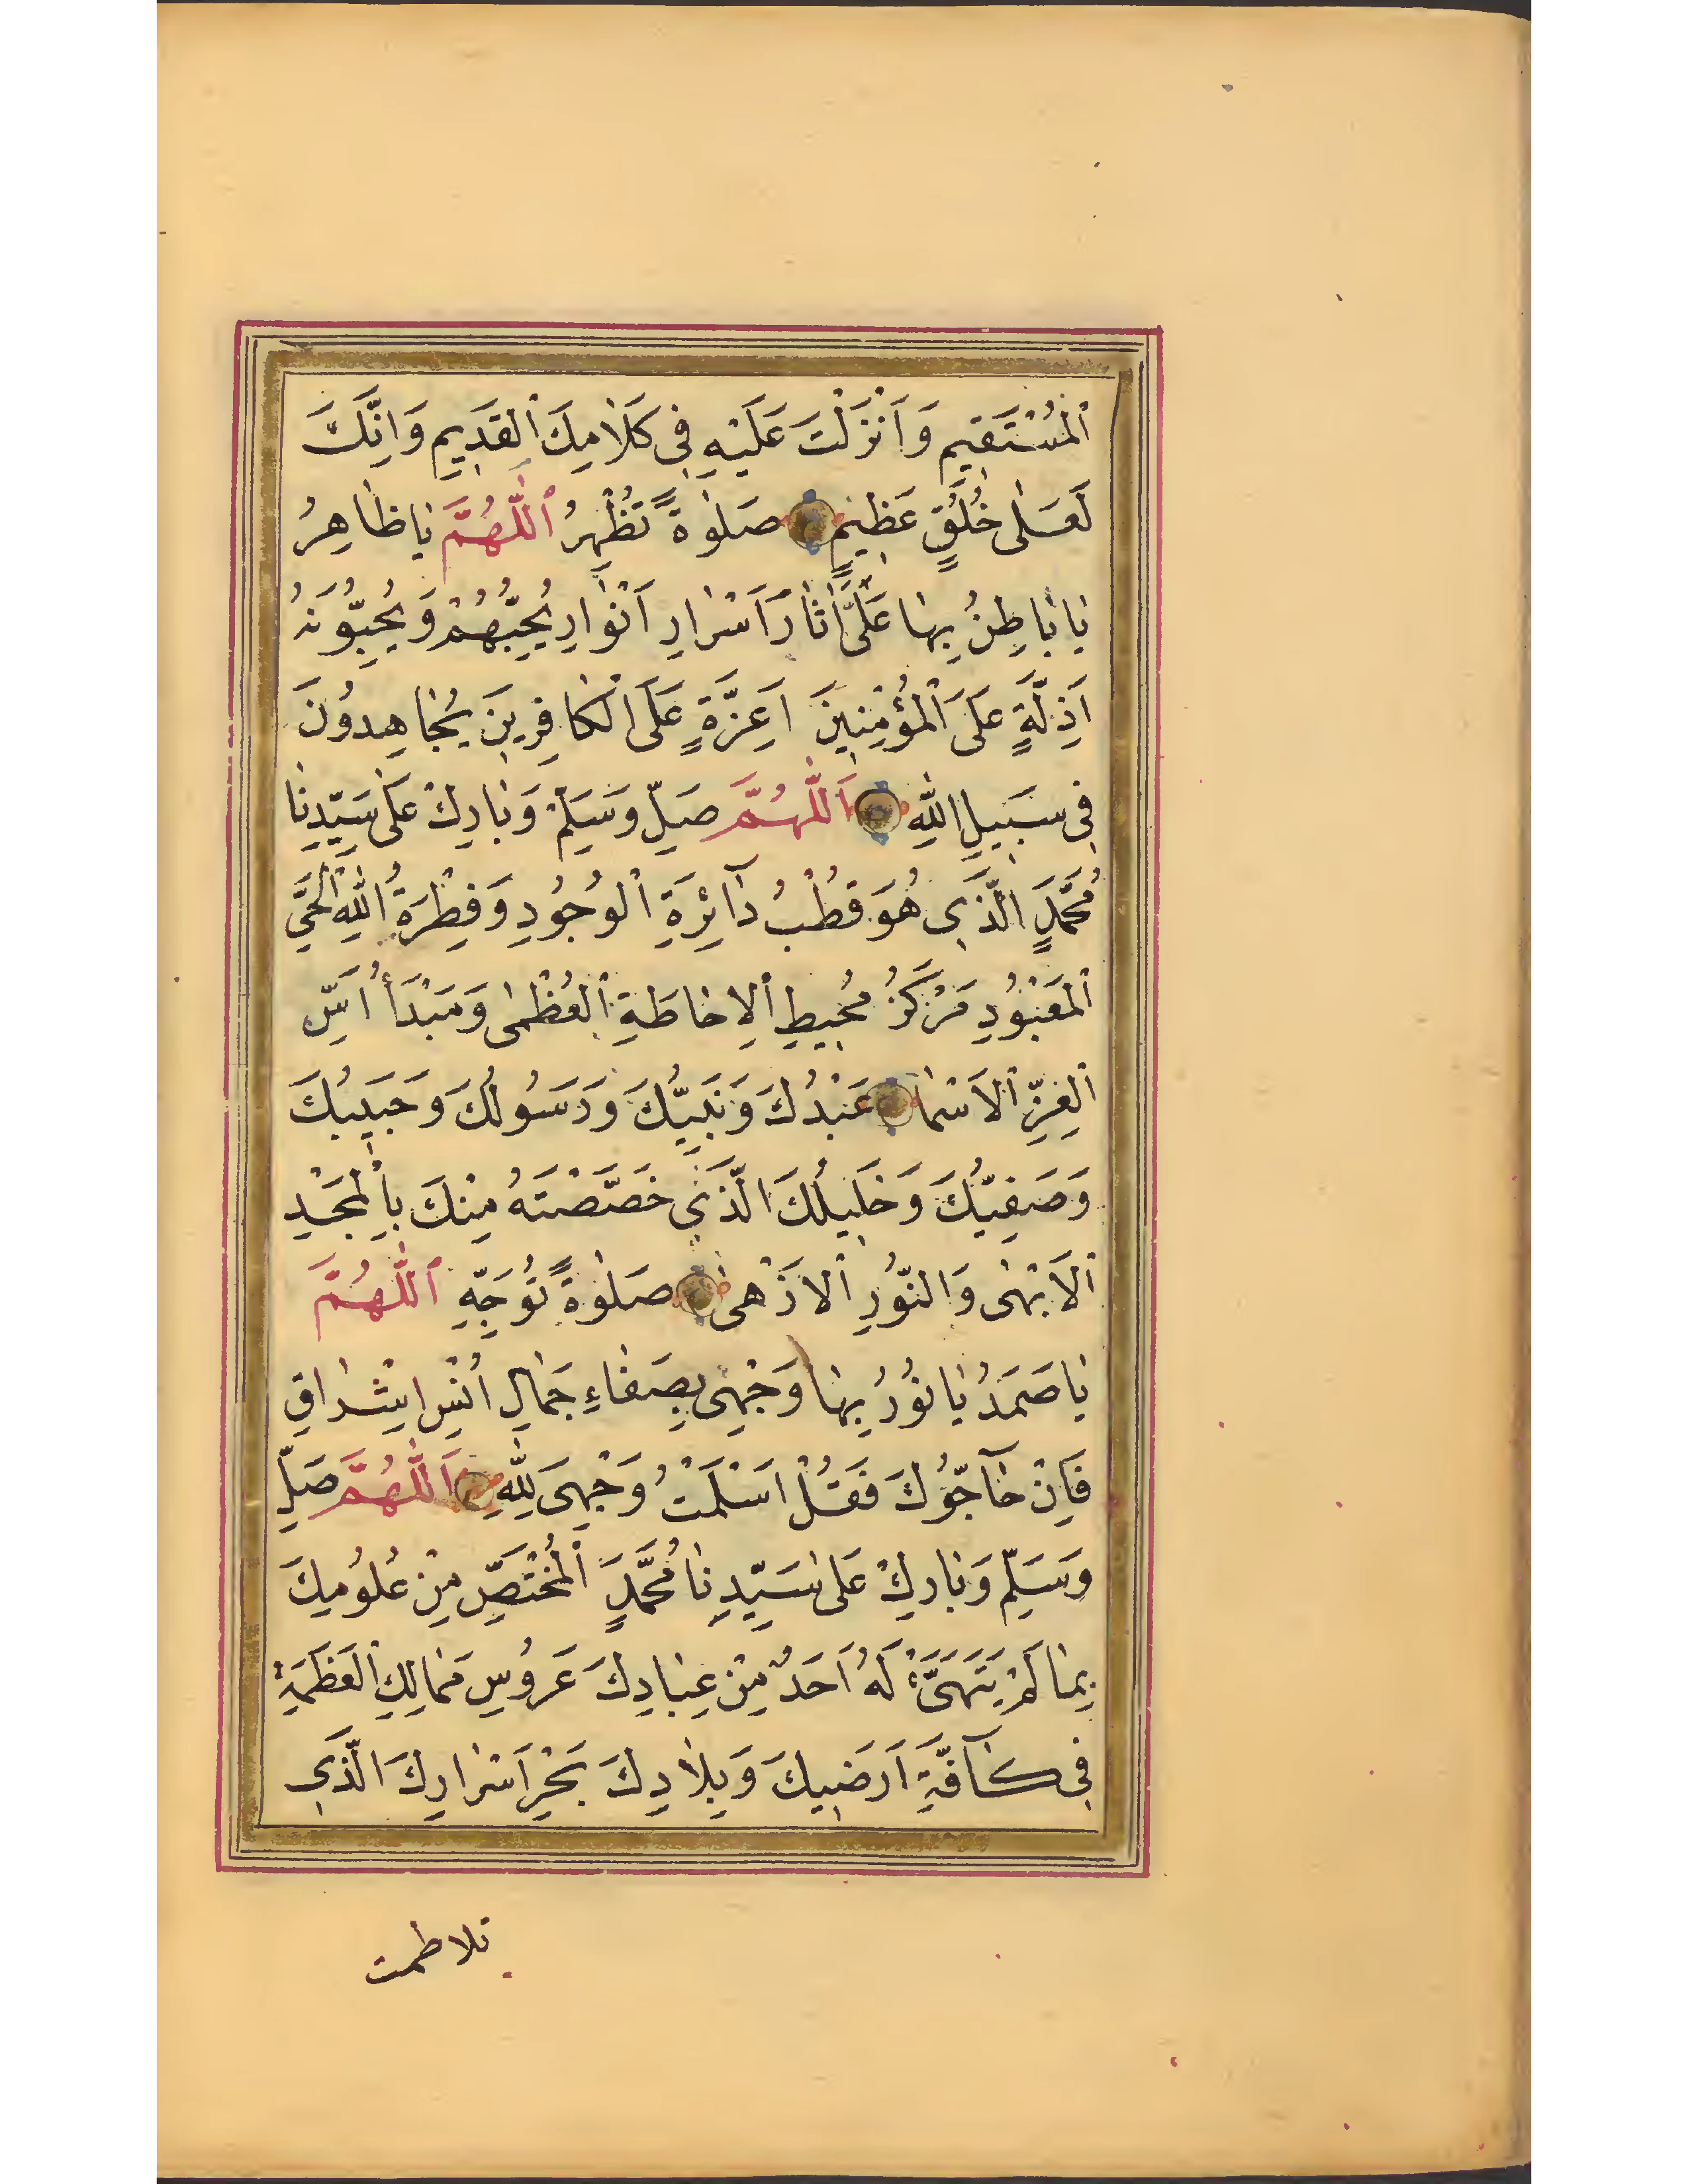 اَلْمُسْتَقِيمِ وَاَنْزَلْتَ عَلَيْهِ فِى كَلَامِكَ الْقَدِيمِ وَاِنَّكَ
لَعَلٰى خُلُقٍ عَظِيمٍ صَلٰوةً تُظْهِرُ اَللّٰهُمَّ يَا ظَاهِرُ
يَا بَاطِنُ بِهَا عَلَىَّ اٰثَارَ اَسْرَارِ اَنْوَارِ يُحِبُّهُمْ وَيُحِبُّونَهُ
اَذِلَّةٍ عَلَى الْمُؤْمِنِينَ اَعِزَّةٍ عَلَى الْكَافِرِينَ يُجَاهِدُونَ
فِى سَبِيلِ اللّٰهِ اَللّٰهُمَّ صَلِّ وَسَلِّمْ وَبَارِكْ عَلٰى سَيِّدِنَا
مُحَمَّدٍ الَّذِى هُوَ قُطْبُ دَآئِرَةِ الْوُجُودِ وَفِطْرَةُ اللّٰهِ الْحَىِّ
الْمَعْبُودِ مَرْكَزُ مُحِيطِ الْاِحَاطَةِ الْعُظْمٰى وَمَبْدَأُ اُسِّ
الْعِزِّ الْاَسْمَا عَبْدُكَ وَنَبِيُّكَ وَرَسُولُكَ وَحَبِيبُكَ
وَصَفِيُّكَ وَخَلِيلُكَ الَّذِى خَصَّصْتَهُ مِنْكَ بِالْمَجْدِ
الْاَبْهٰى وَالنُّورِ الْاَزْهٰى صَلٰوةً تُوَجِّهِ اَللّٰهُمَّ
يَا صَمَدُ يَا نُورُ بِهَا وَجْهِى بِصَفَاءِ جَمَالِ اُنْسِ اِشْرَاقِ
فَاِنْ حَآجُّوكَ فَقُلْ اَسْلَمْتُ وَجْهِىَ لِلّٰهِ اَللّٰهُمَّ صَلِّ
وَسَلِّمْ وَبَارِكْ عَلٰى سَيِّدِنَا مُحَمَّدٍ الْمُخْتَصِّ مِنْ عُلُومِكَ
بِمَا لَمْ يَتَهَيَّئْ لَهُ اَحَدٌ مِنْ عِبَادِكَ عَرُوسِ مَمَالِكِ الْعَظَمَةِ
فِى كَآفَّةِ اَرَضِيكَ وَبِلَادِكَ بَحْرِ اَسْرَارِكَ الَّذِى
تلاطمت